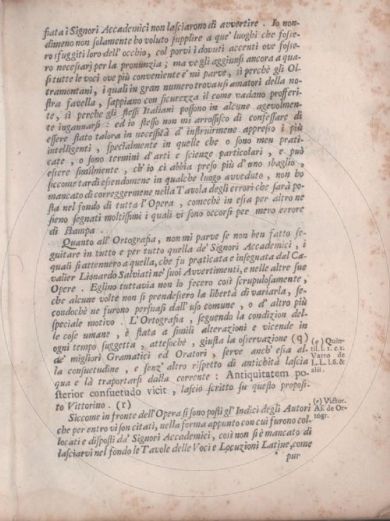 fiata i Signori Accademici non lasciarono di avvertire. Io non-
dimeno non solamente ho voluto supplire a que' luoghi che fosse-
ro sfuggiti loro dell'occhio, col porvi i dovuti accenti ove fosse-
ro necessarj per la pronunzia; ma ve gli aggiunsi ancora a qua-
si tutte le voci ove più conveniente e' mi parve, sì perchè gli Ol-
tramontani, i quali in gran numero trovansi amatori della no-
stra favella, sappiano con sicurezza il come vadano profferi-
te, sì perchè gli stessi Italiani possono in alcune agevolmen-
te ingannarsi: ed io stesso non mi arrossisco di confessare di
essere stato talora in necessità d'instruirmene appresso i più
intelligenti, specialmente in quelle che o sono men prati-
cate, o sono termini d'arti e scienze particolari, e può
essere similmente, ch'io ci abbia preso più d'uno sbaglio,
siccome tardi essendomene in qualche luogo avveduto, non ho
mancato di correggermene nella Tavola degli errori che sarà po-
sta nel fondo di tutta l'Opera, comechè in essa per altro ne
sieno segnati moltissimi i quali vi sono occorsi per mero errore
di stampa.
Quanto all'Ortografia, non mi parve se non ben fatto se-
guitare in tutto e per tutto quella de' Signori Accademici, i
quali si attennero a quella, che fu praticata e insegnata dal Ca-
valier Lionardo Salviati ne' suoi Avvertimenti, e nelle altre sue
Opere. Eglino tuttavia non lo fecero così scrupulosamente,
che alcune volte non si prendessero la libertà di variarla, se-
condochè ne furono persuasi dall'uso comune, o d'altro più
speciale motivo. L'Ortografia, seguendo la condizion del-
le cose umane, è stata a simili alterazioni e vicende in
ogni tempo suggetta, attesochè, giusta la osservazione (q)
de' migliori Gramatici ed Oratori, serve anch'essa al-
la consuetudine, e senz'altro rispetto di antichità lascia
qua e là trasportarsi dalla corrente: Antiquitatem po-
sterior consuetudo vicit, lasciò scritto su questo proposi-
to Vittorino. (r)
Siccome in fronte dell'Opera si sono posti gl'Indici degli Autori
che per entro vi son citati, nella forma appunto con cui furono col-
locati e disposti da' Signori Accademici, così non si è mancato di
lasciarvi nel fondo le Tavole delle Voci e Locuzioni Latine, come
pur
(q) Quin-
til. l. 1. c. 1.
Varro de
L. L. l. 8. &
alii.
(r) Victor.
Af. de Or-
togr.